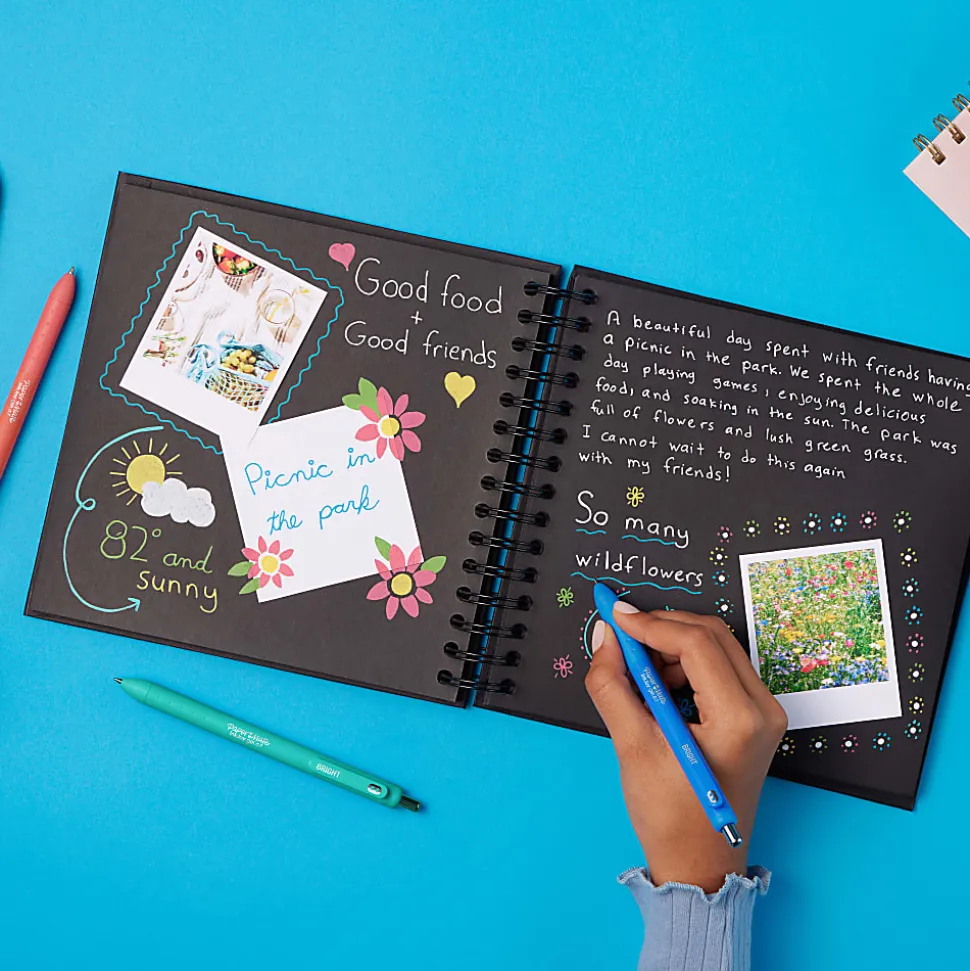 Good food
+
Good friends
Picnic in
the park
82° and
sunny
A beautiful day spent with friends having
a picnic in the park. We spent the whole
day playing games, enjoying delicious
food, and soaking in the sun. The park was
full of flowers and lush green grass.
I cannot wait to do this again
with my friends!
So many
wildflowers
PAPER MATE
INKJOY
BRIGHT
PAPER MATE
INKJOY
BRIGHT
PAPER MATE